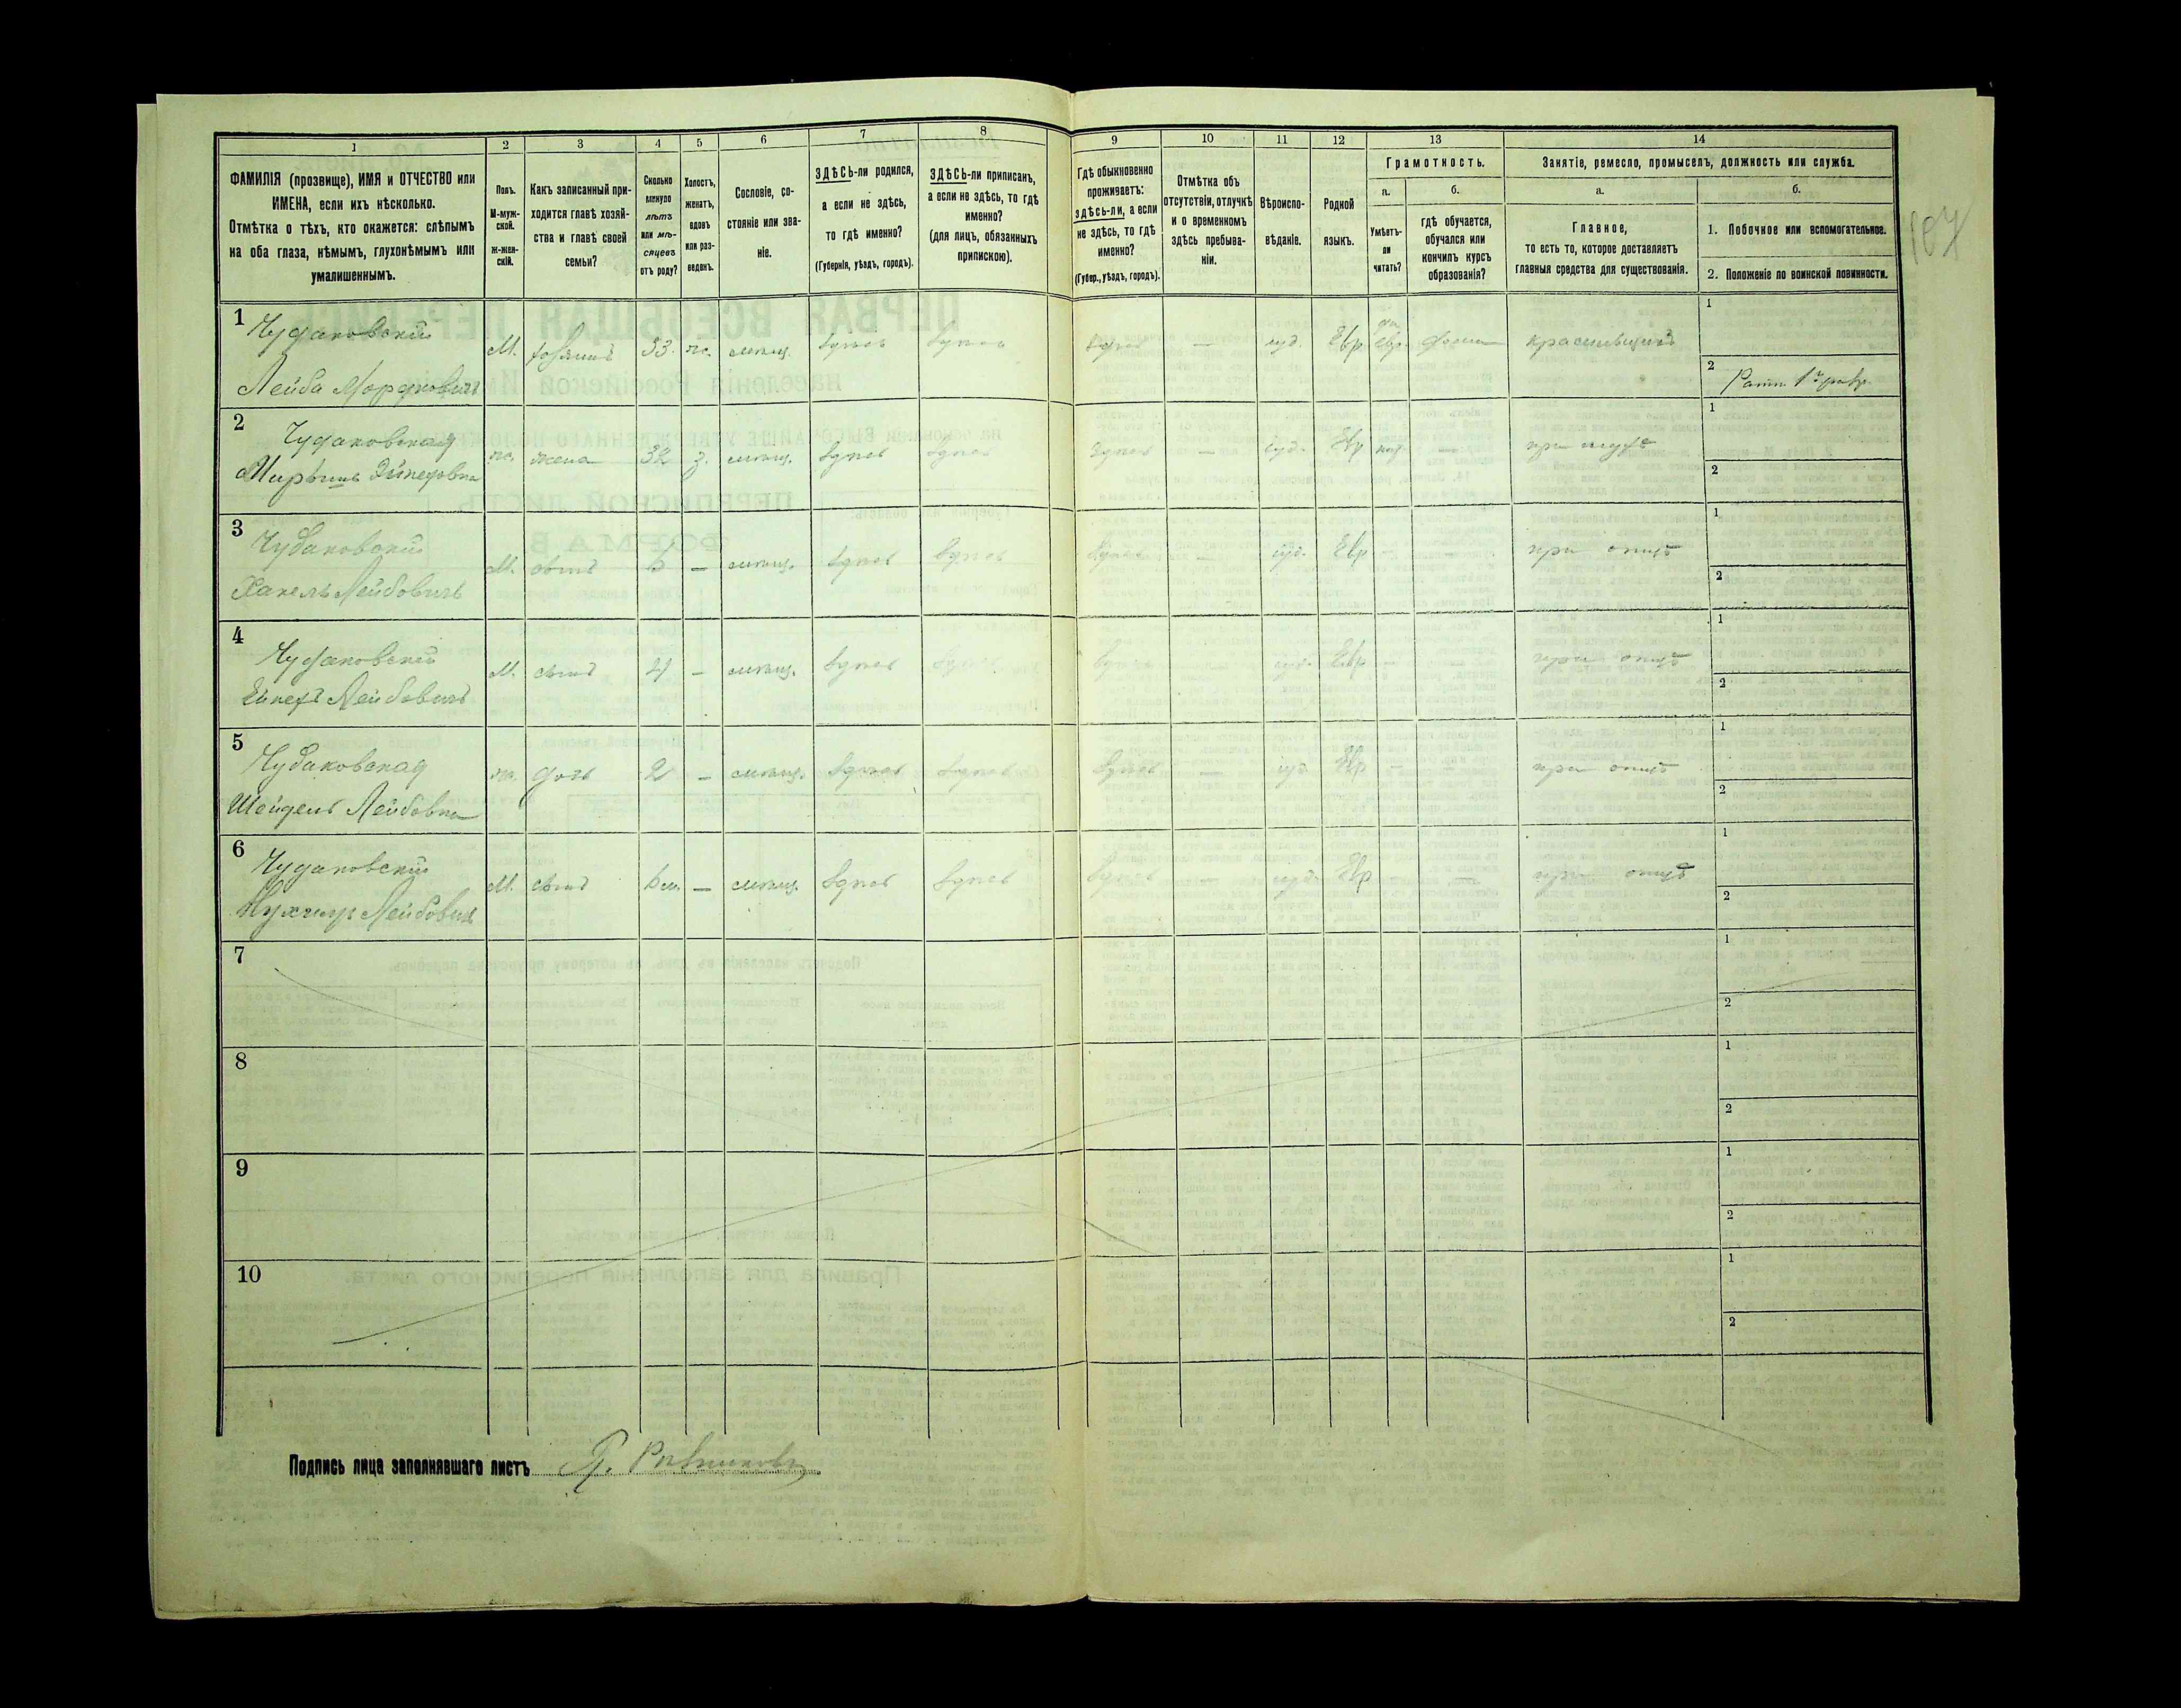 1
2
3
4
5
6
7
8
9
10
11
12
13
14
ФАМИЛІЯ (прозвище), ИМЯ и ОТЧЕСТВО или
ИМЕНА, если ихъ нѣсколько.
Отмѣтка о тѣхъ, кто окажется: слѣпымъ
на оба глаза, нѣмымъ, глухонѣмымъ или
умалишеннымъ.
Полъ.
М-муж-
ской.
ж-жен-
скій.
Какъ записанный при-
ходится главѣ хозяй-
ства и главѣ своей
семьи?
Сколько
минуло
лѣтъ
или мѣ-
сяцевъ
отъ роду?
Холостъ,
женатъ,
вдовъ
или раз-
веденъ.
Сословіе, со-
стояніе или зва-
ніе.
ЗДѢСЬ-ли родился,
а если не здѣсь,
то гдѣ именно?
(Губернія, уѣздъ, городъ).
ЗДѢСЬ-ли приписанъ,
а если не здѣсь, то гдѣ
именно?
(для лицъ, обязанныхъ
припискою).
Гдѣ обыкновенно
проживаетъ:
здѣсь-ли, а если
не здѣсь, то гдѣ
именно?
(Губер., уѣздъ, городъ).
Отмѣтка объ
отсутствіи, отлучкѣ
и о временномъ
здѣсь пребыва-
ніи.
Вѣроиспо-
вѣданіе.
Родной
языкъ.
Грамотность.
а.
Умѣетъ-
ли
читать?
б.
гдѣ обучается,
обучался или
кончилъ курсъ
образованія?
Занятіе, ремесло, промыселъ, должность или служба.
а.
Главное,
то есть то, которое доставляетъ
главныя средства для существованія.
б.
1. Побочное или вспомогательное.
2. Положеніе по воинской повинности.
107
1 Чудаковскій
Лейба Мордковичъ
М. хозяинъ 33. ж. мѣщ. здѣсь здѣсь здѣсь — іуд. Евр. да евр. дома красильщикъ
1
2
2 Чудаковская
ж. жена 32 з. мѣщ. здѣсь здѣсь здѣсь — іуд. Евр. — при мужѣ
1
2
3 Чудаковскій
Лейбовичъ
М. сынъ — мѣщ. здѣсь здѣсь здѣсь — іуд. Евр. — — при отцѣ
1
2
4 Чудаковскій
Лейбовичъ
М. сынъ 4 — мѣщ. здѣсь здѣсь здѣсь — іуд. Евр. — — при отцѣ
1
2
5 Чудаковская
Лейбовна
ж. дочь 2 — мѣщ. здѣсь здѣсь здѣсь — іуд. Евр. — — при отцѣ
1
2
6 Чудаковскій
Лейбовичъ
М. сынъ — мѣщ. здѣсь здѣсь здѣсь — іуд. Евр. — — при отцѣ
1
2
7
1
2
8
1
2
9
1
2
10
1
2
Подпись лица заполнявшаго листъ